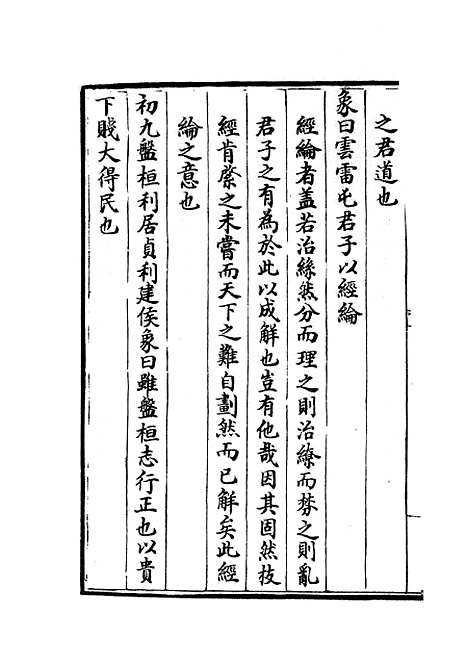 之君道也
象曰雲雷屯君子以經綸
經綸者蓋若治絲然分而理之則治繚而棼之則亂
君子之有為於此以成解也豈有他哉因其固然技
經肯綮之未嘗而天下之難自劃然而已解矣此經
綸之意也
初九盤桓利居貞利建侯象曰雖盤桓志行正也以貴
下賤大得民也